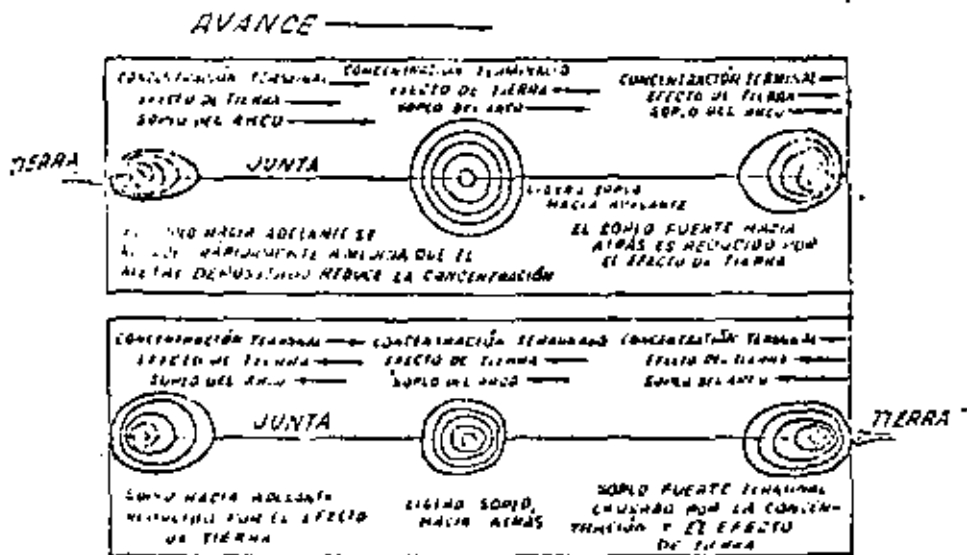 AVANCE
CONCENTRACIÓN TERMINAL
EFECTO DE TIERRA
SOPLO DEL ARCO
CONCENTRACION
EFECTO DE TIERRA
SOPLO DEL ARCO
CONCENTRACIÓN TERMINAL
EFECTO DE TIERRA
SOPLO DEL ARCO
TIERRA
JUNTA
LIGERO SOPLO
HACIA ADELANTE
HACIA ADELANTE SE
RÁPIDAMENTE QUE EL
METAL DEPOSITADO REDUCE LA CONCENTRACIÓN
EL SOPLO FUERTE HACIA
ATRÁS ES REDUCIDO POR
EL EFECTO DE TIERRA
CONCENTRACIÓN TERMINAL
EFECTO DE TIERRA
SOPLO DEL ARCO
CONCENTRACIÓN
EFECTO DE TIERRA
SOPLO DEL ARCO
CONCENTRACIÓN TERMINAL
EFECTO DE TIERRA
SOPLO DEL ARCO
JUNTA
TIERRA
SOPLO HACIA ADELANTE
REDUCIDO POR EL EFECTO
DE TIERRA
LIGERO SOPLO,
HACIA ATRÁS
SOPLO FUERTE TERMINAL
CAUSADO POR LA CONCEN-
TRACIÓN Y EL EFECTO
DE TIERRA